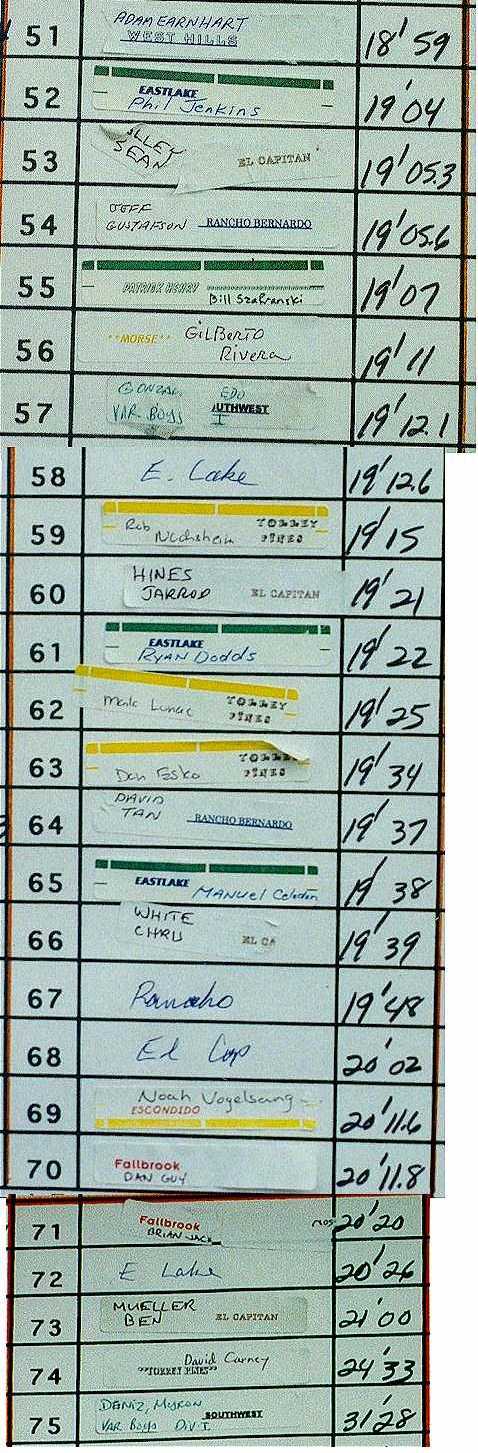 51 ADAM EARNHART
WEST HILLS 18'59
52 EASTLAKE
Phil Jenkins 19'04
53 SEAN EL CAPITAN 19'05.3
54 JEFF
GUSTAFSON RANCHO BERNARDO 19'05.6
55 PATRICK HENRY
Bill Szafranski 19'07
56 **MORSE** GILBERTO
Rivera 19'11
57 VAR BOYS I 19'12.1
58 E. Lake 19'12.6
59 Rob TORREY
PINES 19'15
60 HINES
JARROD EL CAPITAN 19'21
61 EASTLAKE
RYAN Dodds 19'22
62 Mark TORREY
PINES 19'25
63 Dan Esko
PINES 19'34
64 DAVID
TAN RANCHO BERNARDO 19'37
65 EASTLAKE MANUEL 19'38
66 WHITE
CHRIS EL CA 19'39
67 Rancho 19'48
68 El Cap 20'02
69 Noah Vogelsang
ESCONDIDO 20'11.6
70 Fallbrook
DAN GUY 20'11.8
71 Fallbrook
BRIAN JACK 20'20
72 E Lake 20'26
73 MUELLER
BEN EL CAPITAN 21'00
74 David Carney
"TORREY PINES" 24'33
75 DENIZ, MYRON
VAR BOYS DIV I SOUTHWEST 31'28